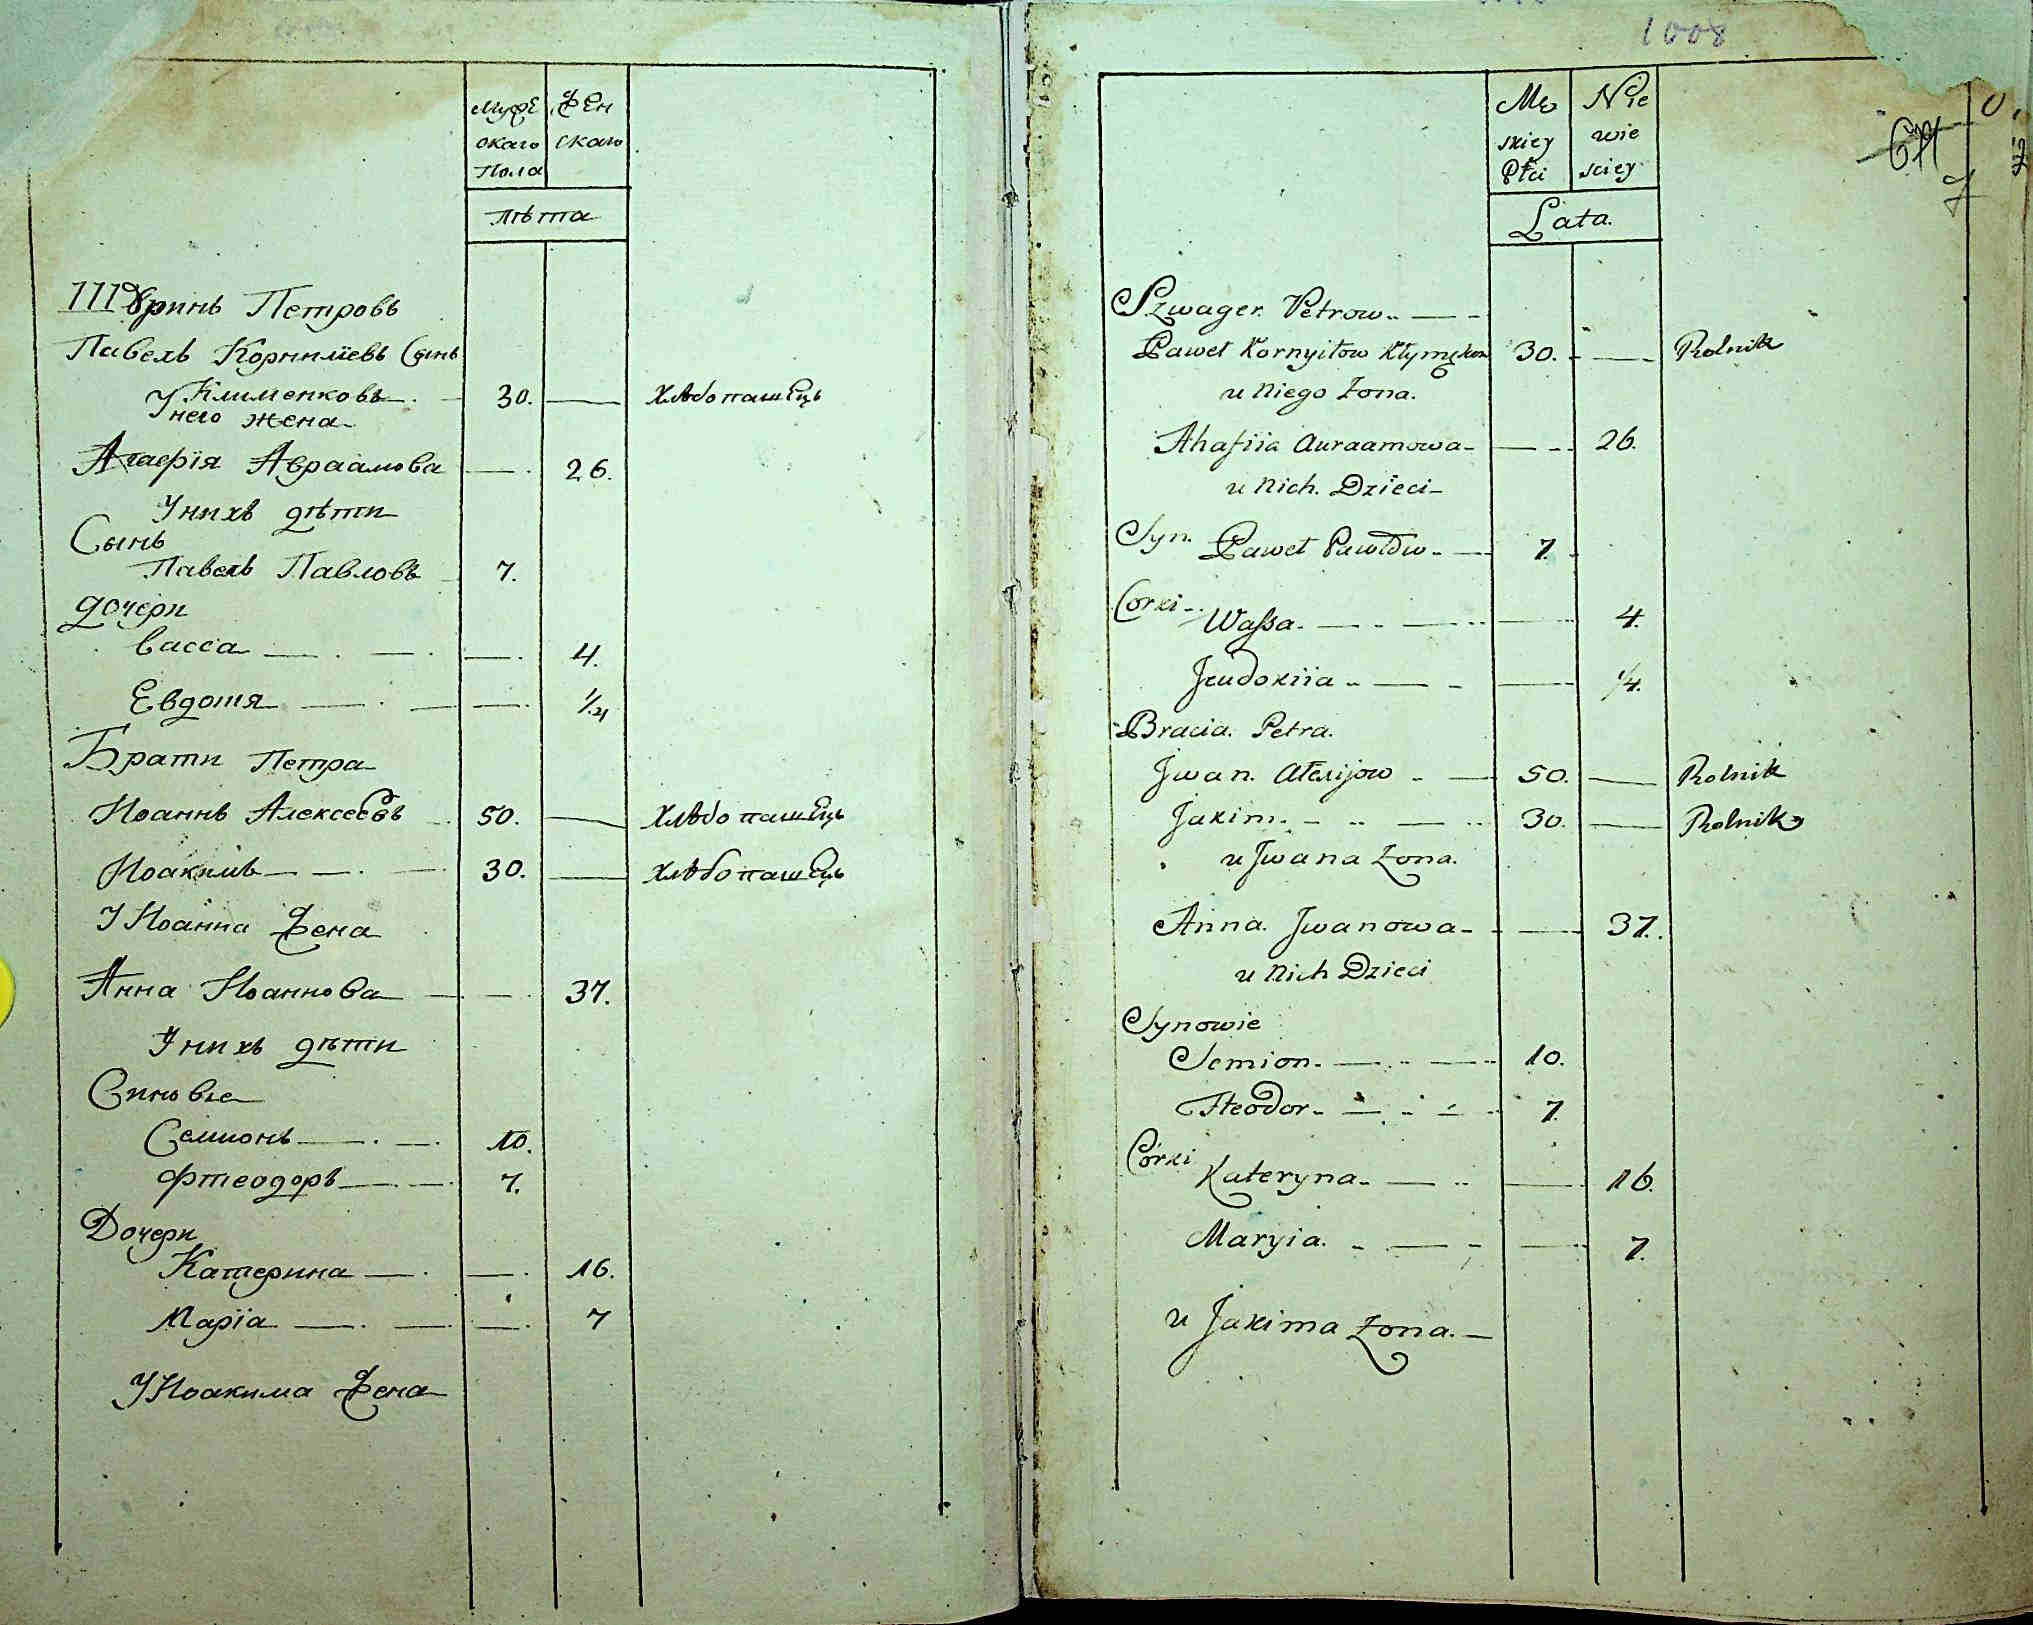 Муже Жен
скаго скаго
Пола
лѣта
Шуринъ Петровъ
Павелъ Корнилїевъ Сынъ
Клименковъ 30. хлѣбопашецъ
У него жена
Агафїя Авраамова 26.
У нихъ дѣти
Сынъ
Павелъ Павловъ 7.
дочери
Васса 4.
Евдотя 1/4
Брати Петра
Иоаннъ Алексеевъ 50. хлѣбопашецъ
Иоакимъ 30. хлѣбопашецъ
У Иоанна Жена
Анна Иоаннова 37.
У нихъ дѣти
Синовье
Семионъ 10.
Фтеодоръ 7.
Дочери
Катерина 16.
Марїа 7
У Иоакима Жена
1008
Mę Nie
skiey wie
Płci sciey
Lata.
Szwager Petrow
Paweł Kornyiłow Kłymękow 30. Rolnik
u Niego Żona.
Ahafiia Auraamowa 26.
u Nich Dzieci
Syn. Paweł Pawłow 7.
Corki
Waßa 4.
Jeudokiia 1/4.
Bracia Petra.
Jwan Ałexijow 50. Rolnik
Jakim 30. Rolnik
u Jwana Żona.
Anna Jwanowa 37.
u Nich Dzieci
Synowie
Semion 10.
Fteodor 7.
Córki
Kateryna 16.
Maryia 7.
u Jakima Żona.